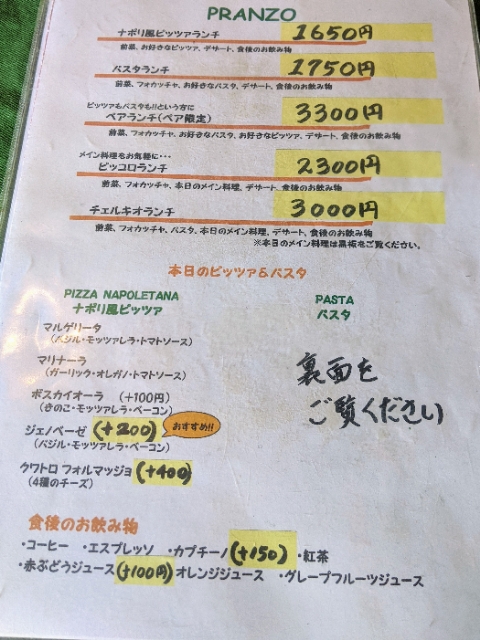 PRANZO
ナポリ風ピッツァランチ 1650円
前菜、お好きなピッツァ、デザート、食後のお飲み物
パスタランチ 1750円
前菜、フォカッチャ、お好きなパスタ、デザート、食後のお飲み物
ピッツァもパスタも!!という方に
ペアランチ(ペア限定) 3300円
前菜、フォカッチャ、お好きなパスタ、お好きなピッツァ、デザート、食後のお飲み物
メイン料理もお気軽に・・・
ピッコロランチ 2300円
前菜、フォカッチャ、本日のメイン料理、デザート、食後のお飲み物
チェルキオランチ 3000円
前菜、フォカッチャ、パスタ、本日のメイン料理、デザート、食後のお飲み物
※本日のメイン料理は黒板をご覧ください。
本日のピッツァ&パスタ
PIZZA NAPOLETANA
ナポリ風ピッツァ
マルゲリータ
(バジル・モッツァレラ・トマトソース)
マリナーラ
(ガーリック・オレガノ・トマトソース)
ボスカイオーラ (+100円)
(きのこ・モッツァレラ・ベーコン)
ジェノベーゼ (+200) おすすめ!!
(バジル・モッツァレラ・ベーコン)
クワトロ フォルマッジョ (+400)
(4種のチーズ)
PASTA
パスタ
裏面を
ご覧ください
食後のお飲み物
・コーヒー ・エスプレッソ ・カプチーノ(+150) ・紅茶
・赤ぶどうジュース(+100円) オレンジジュース ・グレープフルーツジュース